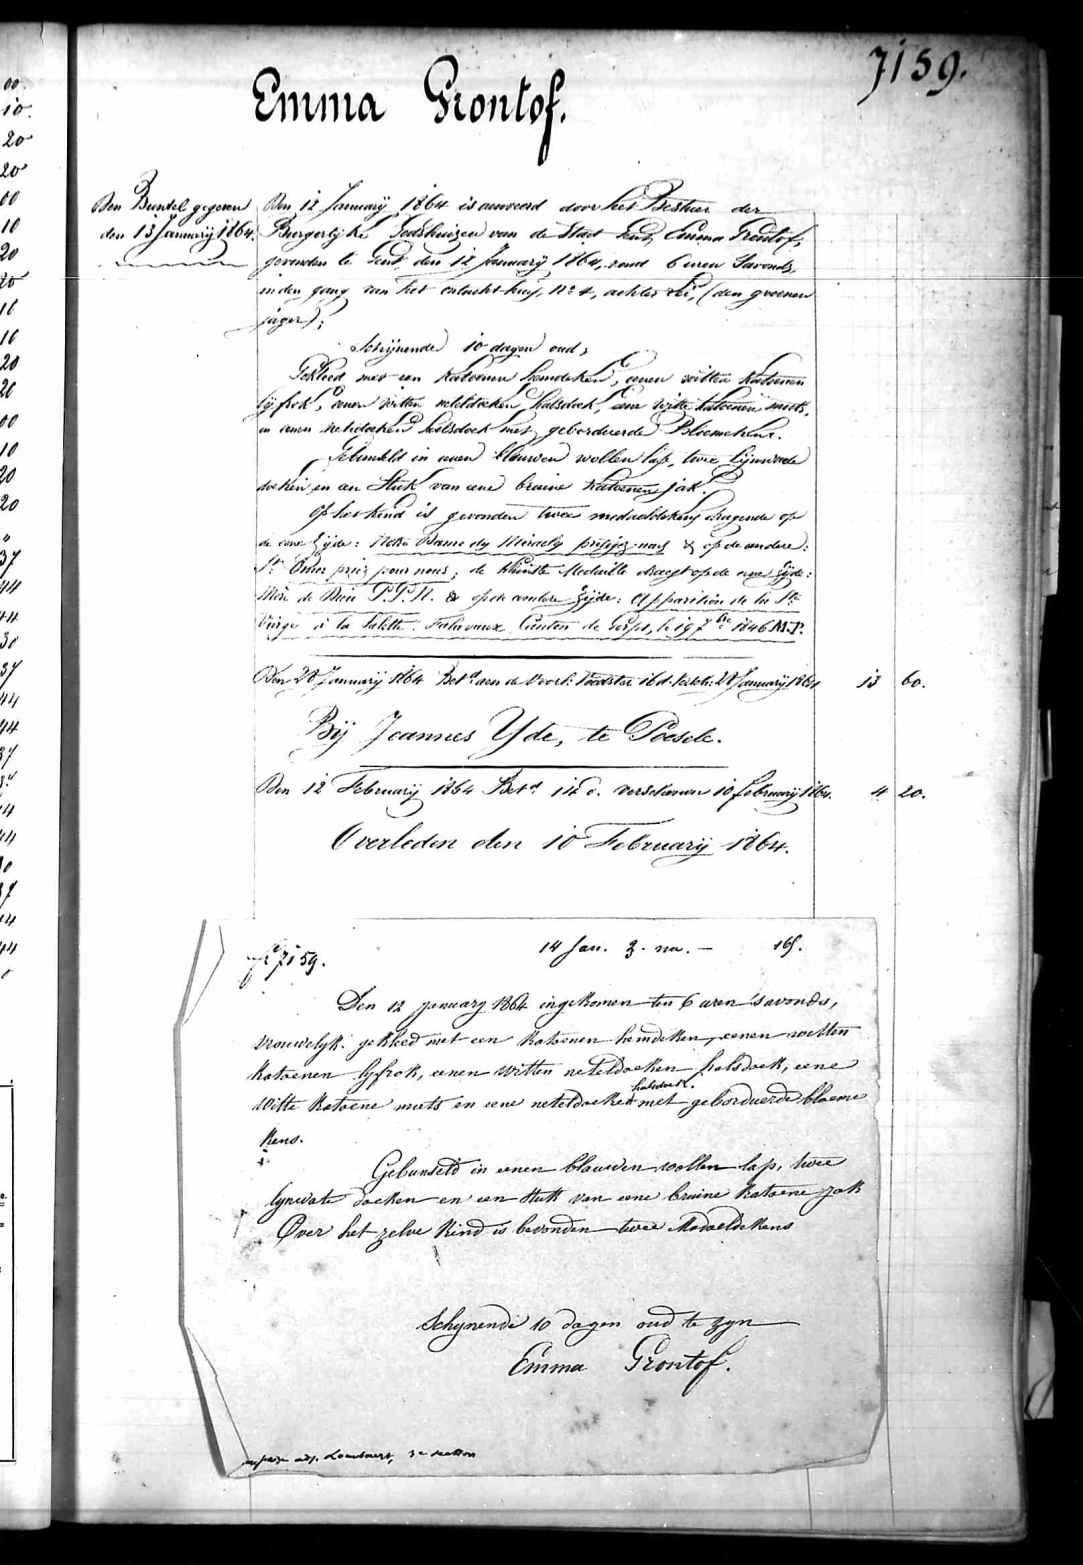 7159.
Emma Grontof.
Den Bundel gegeven
den 13 January 1864.
Den 12 Januarij 1864 is aanveerd door het Bestuer der
Burgerlijke Godshuizen van de Stad Gend, Emma Grontof,
gevonden te Gend, den 12 Januarij 1864, rond 6 uren Savonds,
in den gang van het ontucht huis, No 4, achter (den groenen
jager);
Schijnende 10 dagen oud;
Gekleed met een katoenen hemdeken, eenen witten katoenen
lijfrok, eenen witten neteldoeken halsdoek, eene witte katoenen muts,
en eenen neteldoeken halsdoek met geborduerde Bloemekens.
Gebunseld in eenen blauwen wollen lap, twee lijnwade
doeken en een Stuk van eene bruine katoenen jak.
Op het kind is gevonden twee medaeldekens dragende op
de eene zijde: Notre Dame des Miracles priez pour nous & op de andere:
St. Omer priez pour nous; de kleinste Medaille draegt op de eene zijde:
Mère de Dieu P.P.N. & op de andere zijde: Apparition de la Ste
Vierge à la Salette. Fallavaux Canton de Corps, le 19 7bre 1846 M.P.
Den 28 January 1864 Betd aen de Voorl: Voedster 16 d. 28 January 1864 13 60.
Bij Joannes Yde, te Poesele.
Den 12 February 1864 Betd 14 d. verschenen 10 february 1864. 4 20.
Overleden den 10 February 1864.
No 7159.
14 Jan. 3. nu. — 165.
Den 12 january 1864 ingekomen ten 6 uren 's avonds,
vrouwelyk. gekleed met een katoenen hemdeken, eenen witten
katoenen lyfrok, eenen witten neteldoeken halsdoek, eene
halsdoek.
witte katoene muts en eene neteldoeken met geborduerde bloeme
kens.
Gebunseld in eenen blauwen wollen lap, twee
lynwate doeken en een stuk van eene bruine katoene jak
Over het zelve kind is bevonden twee Medaeldekens
Schynende 10 dagen oud te zyn
Emma Grontof.
adj. Lambaert, 3e section